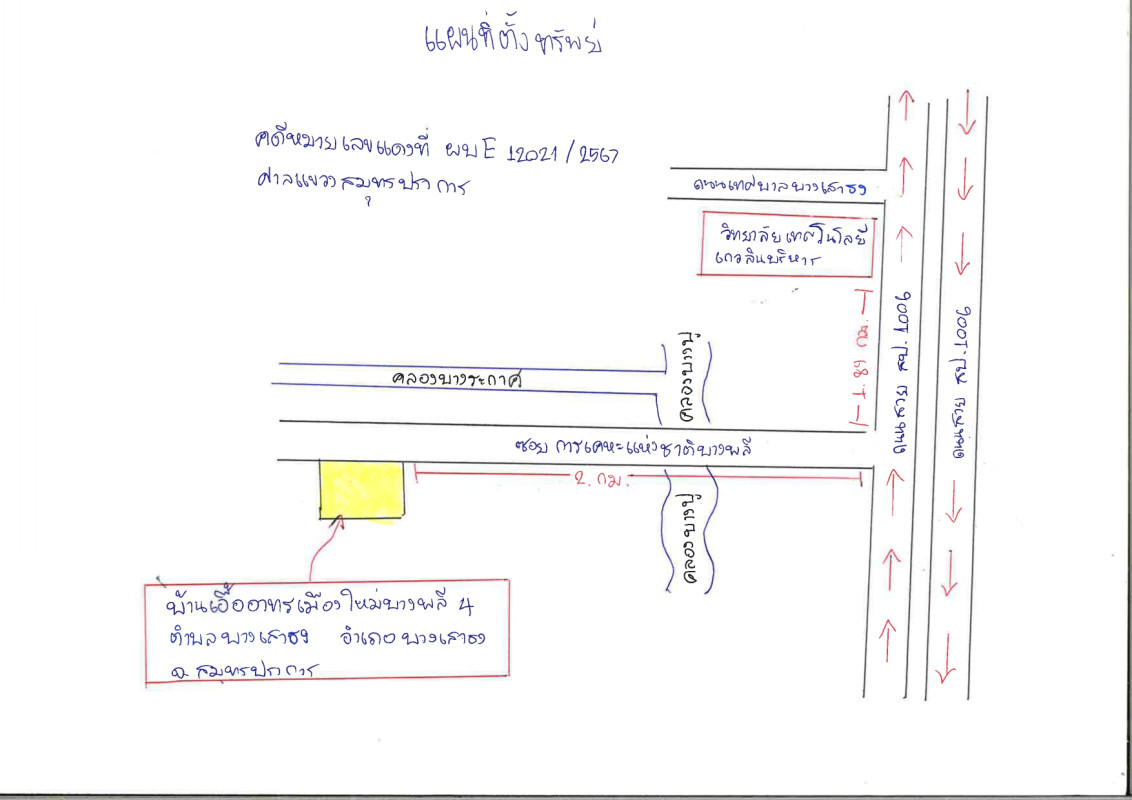 แผนที่ตั้งทรัพย์
คดีหมายเลขแดงที่ ผบE 12021/2567
ศาลแขวงสมุทรปราการ
ถนนเทศบาลบางเสาธง
วิทยาลัยเทคโนโลยี
เกวลินบริหาร
คลองบางปู
คลองบางระกาศ
ซอย การเคหะแห่งชาติบางพลี
2. กม.
คลองบางปู
สป. 1006
สป. 1006
บ้านเอื้ออาทรเมืองใหม่บางพลี 4
ตำบลบางเสาธง อำเภอบางเสาธง
จ. สมุทรปราการ